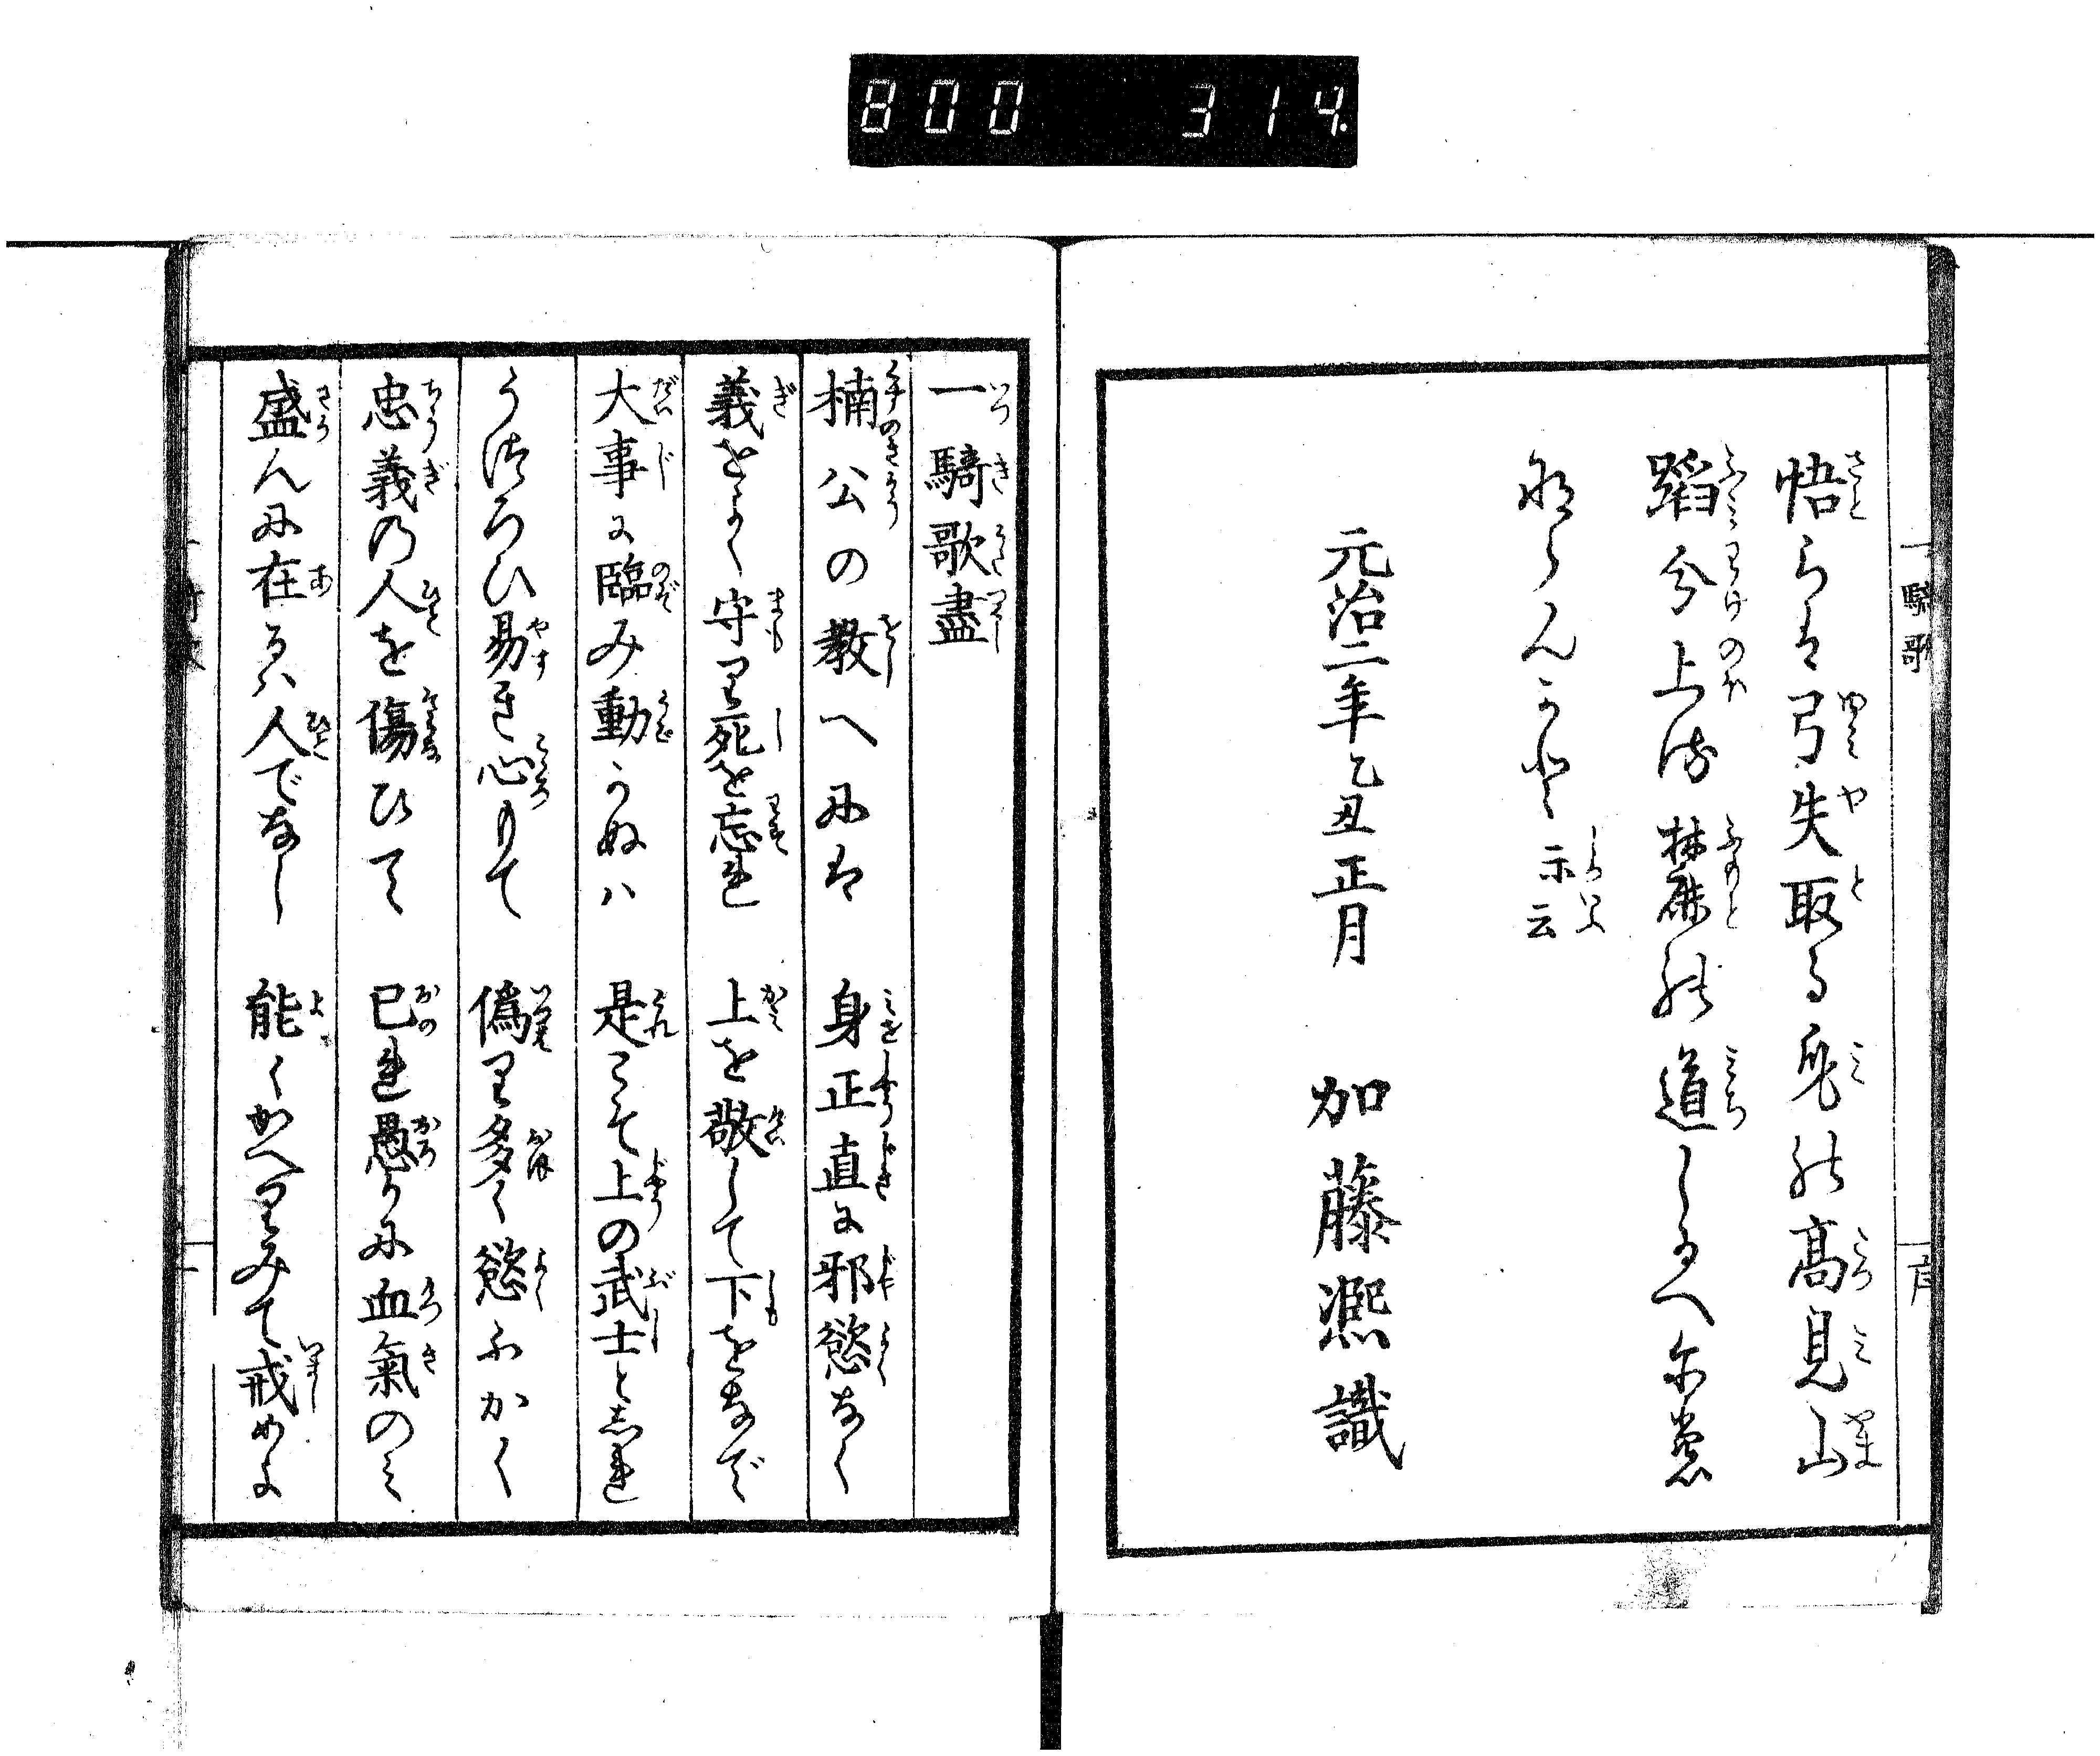 800 314.
一騎歌
悟らは弓失取る兒の高見山
蹈分上る麓の道しるへにも
ならんかと示云
元治二年乙丑正月 加藤凞識
一騎歌盡
楠公の教へには 身正直に邪慾なく
義をよく守り死を忘れ 上を敬して下をなで
大事に臨み動かぬハ 是こそ上の武士としれ
うつろひ易き心もて 偽り多く慾ふかく
忠義の人を傷ひて 已れ愚かに血氣のミ
盛んに在るハ人でなし 能くかへりみて戒めよ